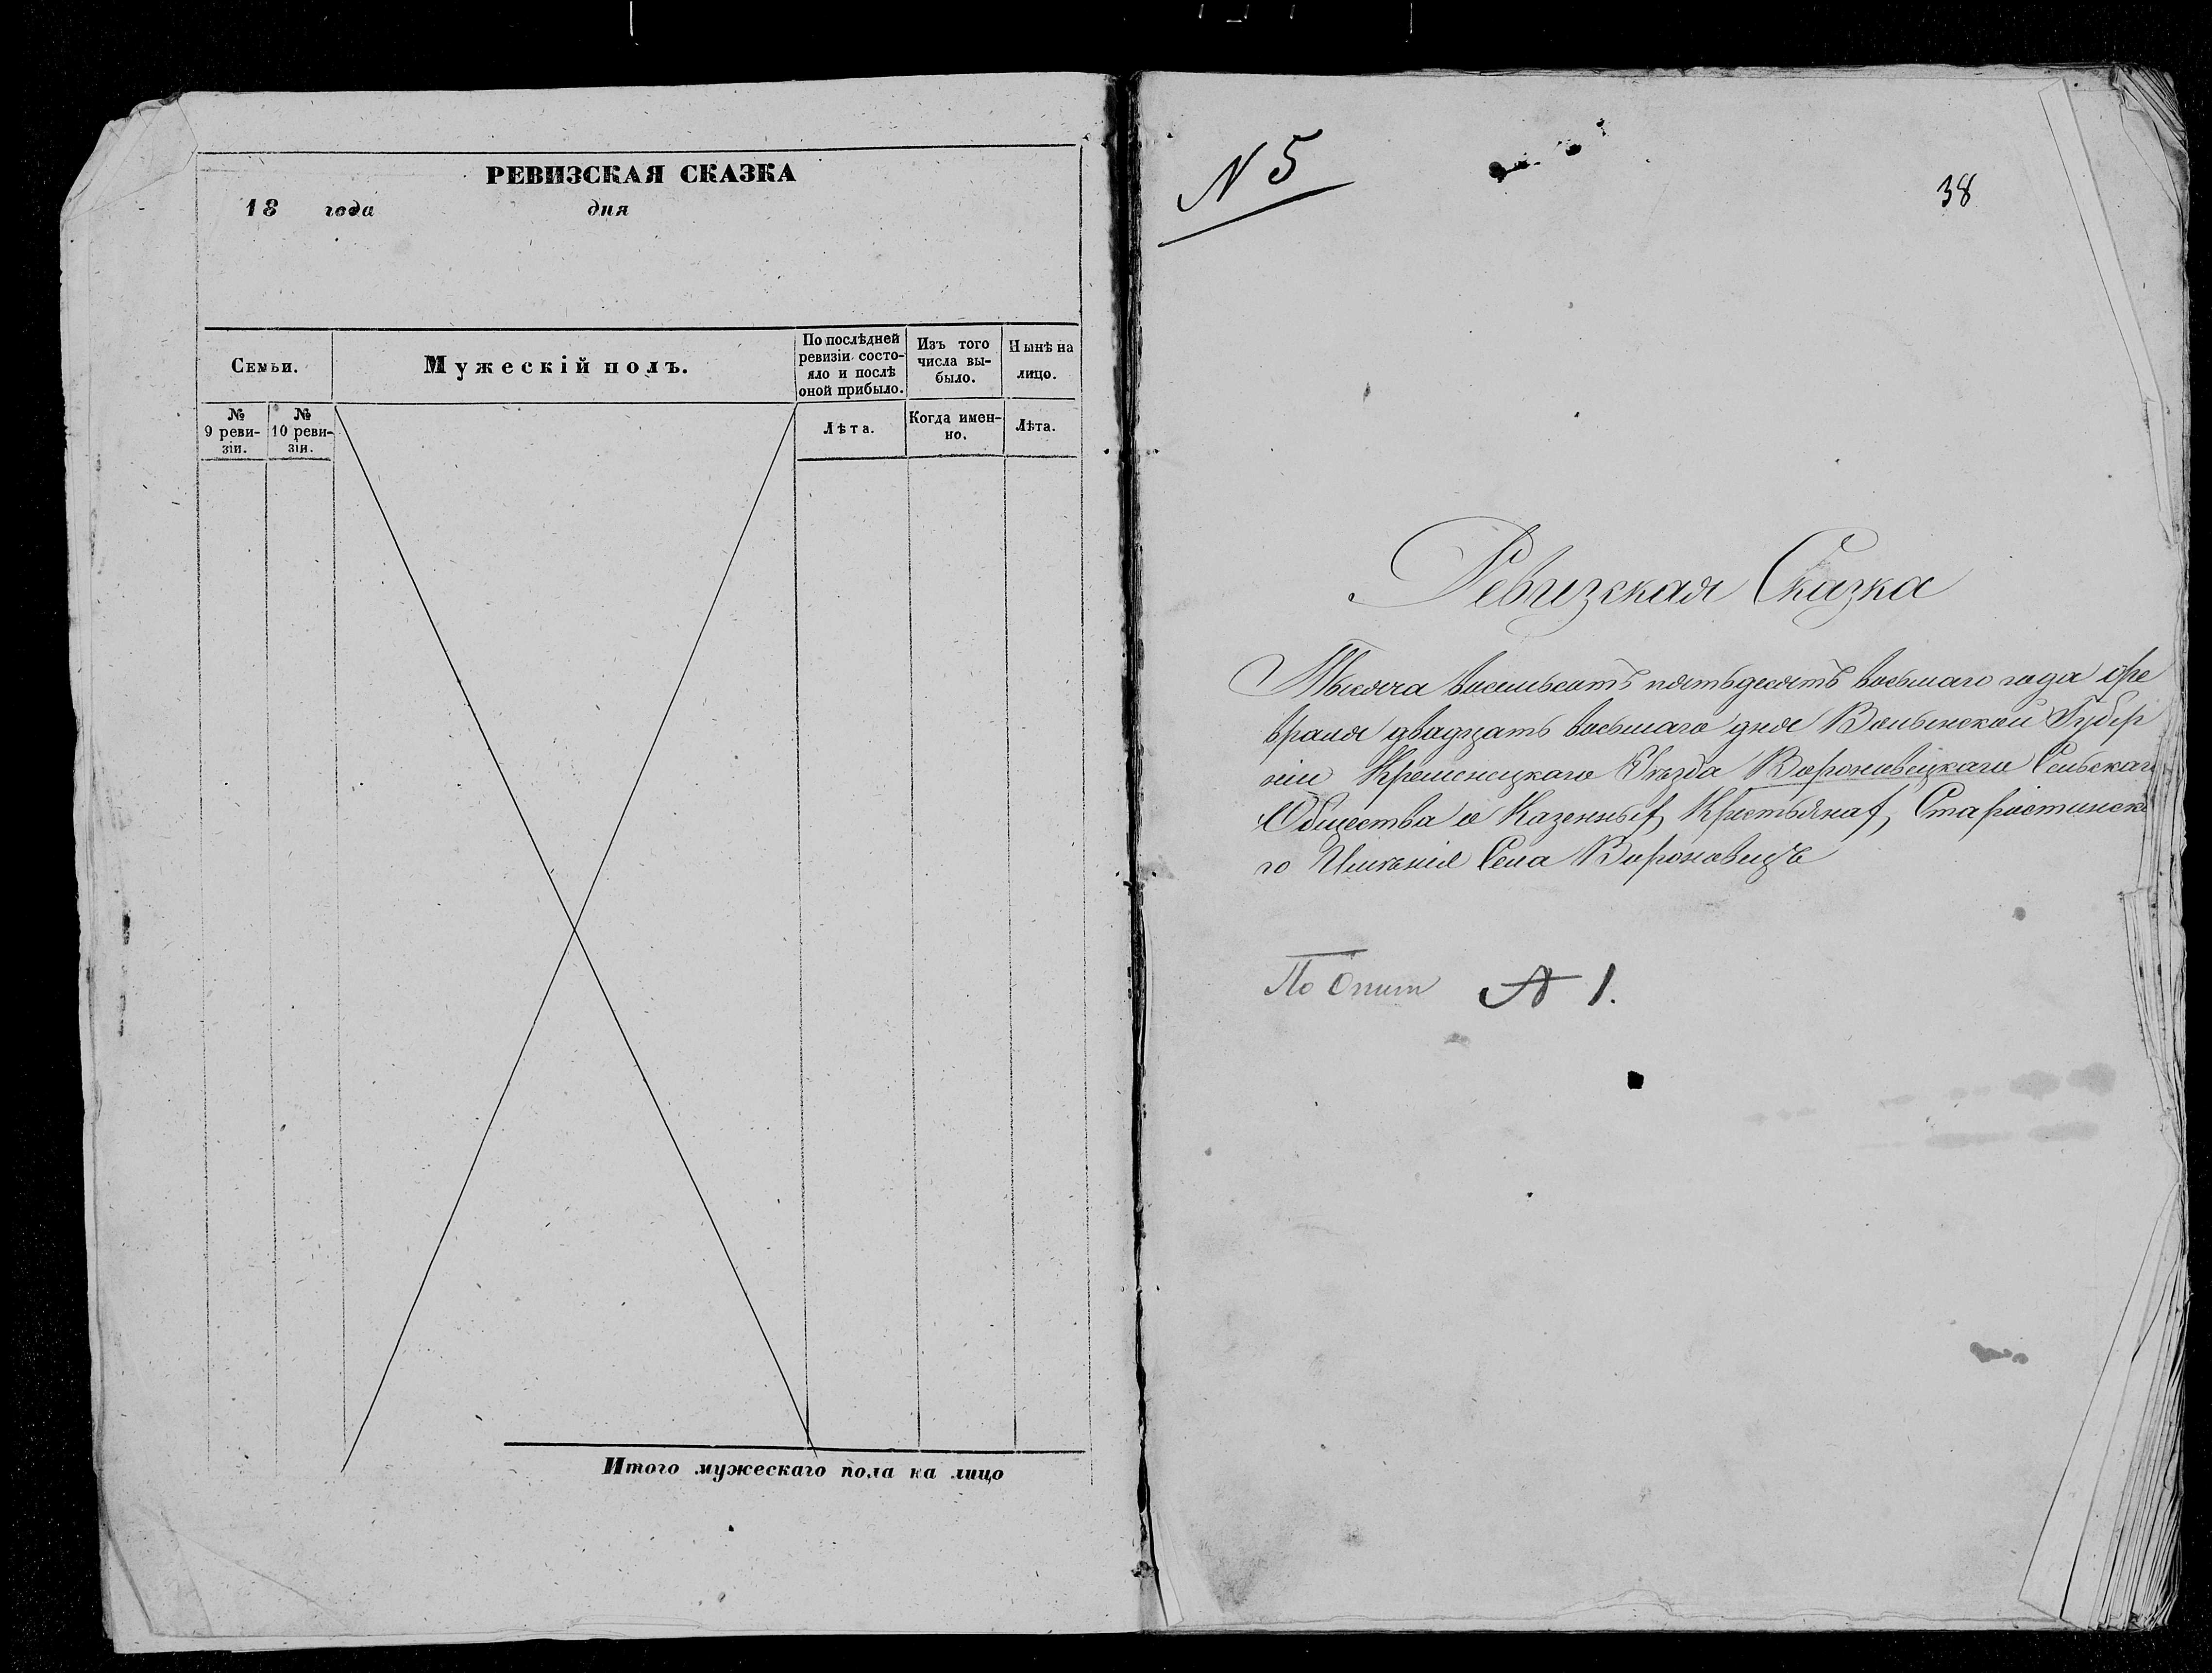 РЕВИЗСКАЯ СКАЗКА
18 года дня
Семьи.
Мужескій полъ.
По послѣдней
ревизіи состо-
яло и послѣ
оной прибыло.
Изъ того
числа вы-
было.
Нынѣ на
лицо.
№
9 реви-
зіи.
№
10 реви-
зіи.
Лѣта.
Когда имен-
но.
Лѣта.
Итого мужескаго пола на лицо
N 5
38
Ревизская Сказка
Тысяча восемьсотъ пятьдесятъ восьмаго года фе
враля двадцать восьмаго дня Волынской Губер
ніи Кременецкаго Уѣзда Вороновецкаго Сельскаго
Общества о Казенныхъ Крестьянахъ, Старостинска
го Имѣнія Села Вороновецъ
По Описи № 1.